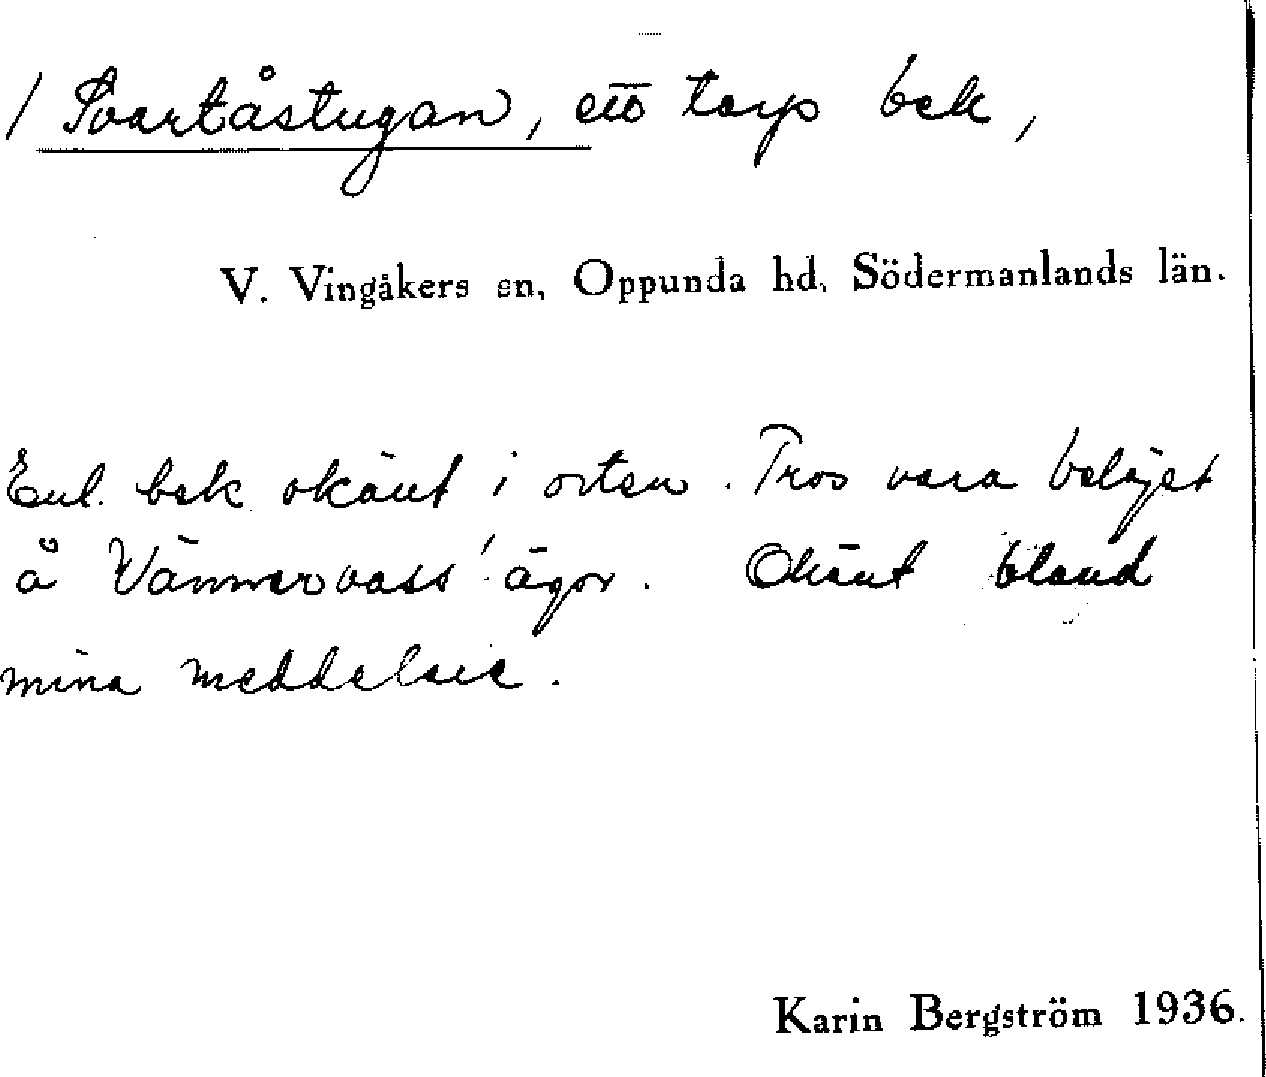 / Svartåstugan, ett torp bek,
V. Vingåkers sn, Oppunda hd, Södermanlands län.
Enl. bek okänt i orten. Tros vara beläget
å Vännevass' ägor. Okänt bland
mina meddelare.
Karin Bergström 1936.